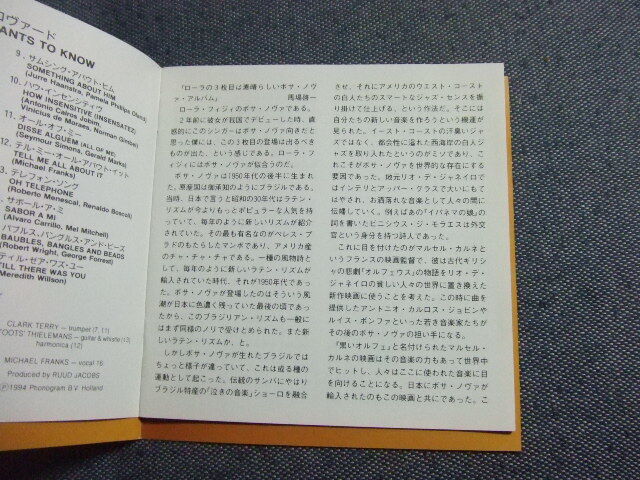 ロヴァード
ANTS TO KNOW
9. サムシング・アバウト・ヒム
SOMETHING ABOUT HIM
(Jurre Haanstra, Pamela Phillips Oland)
10. ハウ・インセンシティヴ
HOW INSENSITIVE (INSENSATEZ)
(Antonio Carlos Jobim,
Vinicius de Moraes, Norman Gimbel)
11. オール・オブ・ミー
DISSE ALGUEM (ALL OF ME)
(Seymour Simons, Gerald Marks)
12. テル・ミー・オール・アバウト・イット
TELL ME ALL ABOUT IT
(Michael Franks)
3. テレフォン・ソング
OH TELEPHONE
(Roberto Menescal, Renaldo Boscoli)
サボール・ア・ミ
SABOR A MI
(Alvaro Carrillo, Mel Mitchell)
バブルス・バングルス・アンド・ビーズ
BAUBLES, BANGLES AND BEADS
(Robert Wright, George Forrest)
ティル・ゼア・ワズ・ユー
TILL THERE WAS YOU
(Meredith Willson)
CLARK TERRY — trumpet (7, 11)
TOOTS' THIELEMANS — guitar & whistle (13)
harmonica (12)
MICHAEL FRANKS — vocal 16
Produced by RUUD JACOBS
Ⓟ1994 Phonogram B.V. Holland
「ローラの3枚目は素晴らしいボサ・ノヴ
ァ・アルバム」 馬場啓一
ローラ・フィジィのボサ・ノヴァである。
2年前に彼女が我国でデビューした時、直
感的にこのシンガーはボサ・ノヴァ向きだと
思った僕には、この3枚目の登場は出るべ
きものが出た、という感じである。ローラ・フ
ィジィにはボサ・ノヴァが似合うのだ。
ボサ・ノヴァは1950年代の後半に生まれ
た。原産国は御承知のようにブラジルである。
当時、日本で言うと昭和の30年代はラテン・
リズムが今よりもっとポピュラーな人気を持
っていて、毎年のように新しいリズムが紹介
されていた。その最も有名なのがペレス・プ
ラドのもたらしたマンボであり、アメリカ産
のチャ・チャ・チャである。一種の風物詩と
して、毎年のように新しいラテン・リズムが
輸入されていた時代、それが1950年代であっ
た。ボサ・ノヴァが登場したのはそういう風
潮が日本に色濃く残っていた最後の頃であっ
たから、このブラジリアン・リズムも一般に
はまず同様のノリで受けとめられた。また新
しいラテン・リズムか、と。
しかしボサ・ノヴァが生れたブラジルでは
ちょっと様子が違っていて、これは或る種の
運動として起こった。伝統のサンバにやはり
ブラジル特産の「泣きの音楽」ショーロを融合
させ、それにアメリカのウエスト・コースト
の白人たちのスマートなジャズ・センスを振
り掛けて仕上げる、という作法だ。そこには
自分たちの新しい音楽を作ろうという機運が
見られた。イースト・コーストの汗臭いジャ
ズではなく、都会性に溢れた西海岸の白人ジ
ャズを取り入れたというのがミソであり、こ
れこそがボサ・ノヴァを世界的な存在にする
要因であった。地元リオ・デ・ジャネイロで
はインテリとアッパー・クラスで大いにもて
はやされ、お洒落れな音楽として人々の間に
伝播していく。例えばあの「イパネマの娘」の
詞を書いたビニシウス・ジ・モラエスは外交
官という身分を持つ詩人であった。
これに目を付けたのがマルセル・カルネと
いうフランスの映画監督で、彼は古代ギリシ
ャの悲劇「オルフェウス」の物語をリオ・デ・
ジャネイロの貧しい人々の世界に置き換えた
新作映画に使うことを考えた。この時に曲を
提供したがアントニオ・カルロス・ジョビンや
ルイス・ボンファといった若き音楽家たちが
その後のボサ・ノヴァの担い手になる。
「黒いオルフェ」と名付けられたマルセル・
カルネの映画はその音楽の力もあって世界中
でヒットし、人々はここに使われた音楽に目
を向けることになる。日本にボサ・ノヴァが
輸入されたのもこの映画と共にであった。こ